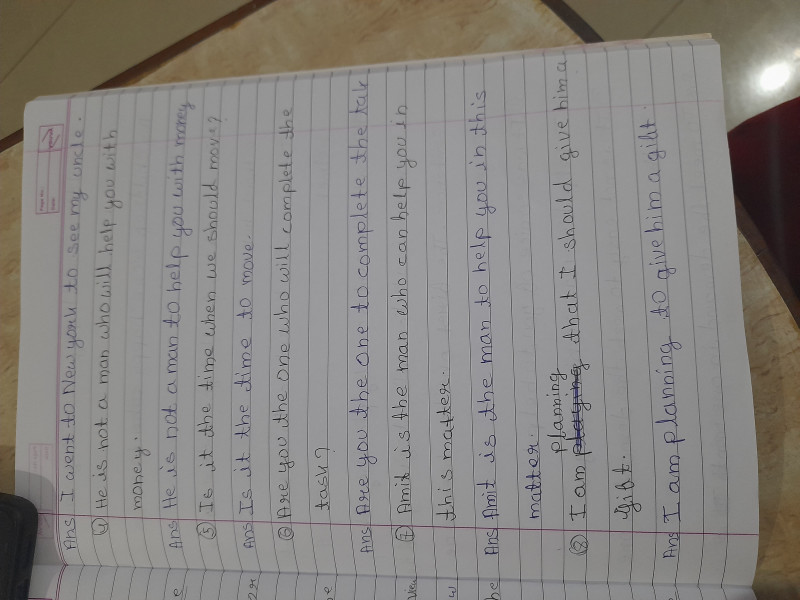 Ans I went to New york to see my uncle.
④ He is not a man who will help you with
money.
Ans He is not a man to help you with money
⑤ Is it the time when we should move?
Ans Is it the time to move.
⑥ Are you the one who will complete the
task?
Ans Are you the one to complete the tak
⑦ Amit is the man who can help you in
this matter.
Ans Amit is the man to help you in this
matter.
planning
⑧ I am that I should give him a
gift.
Ans I am planning to give him a gift.